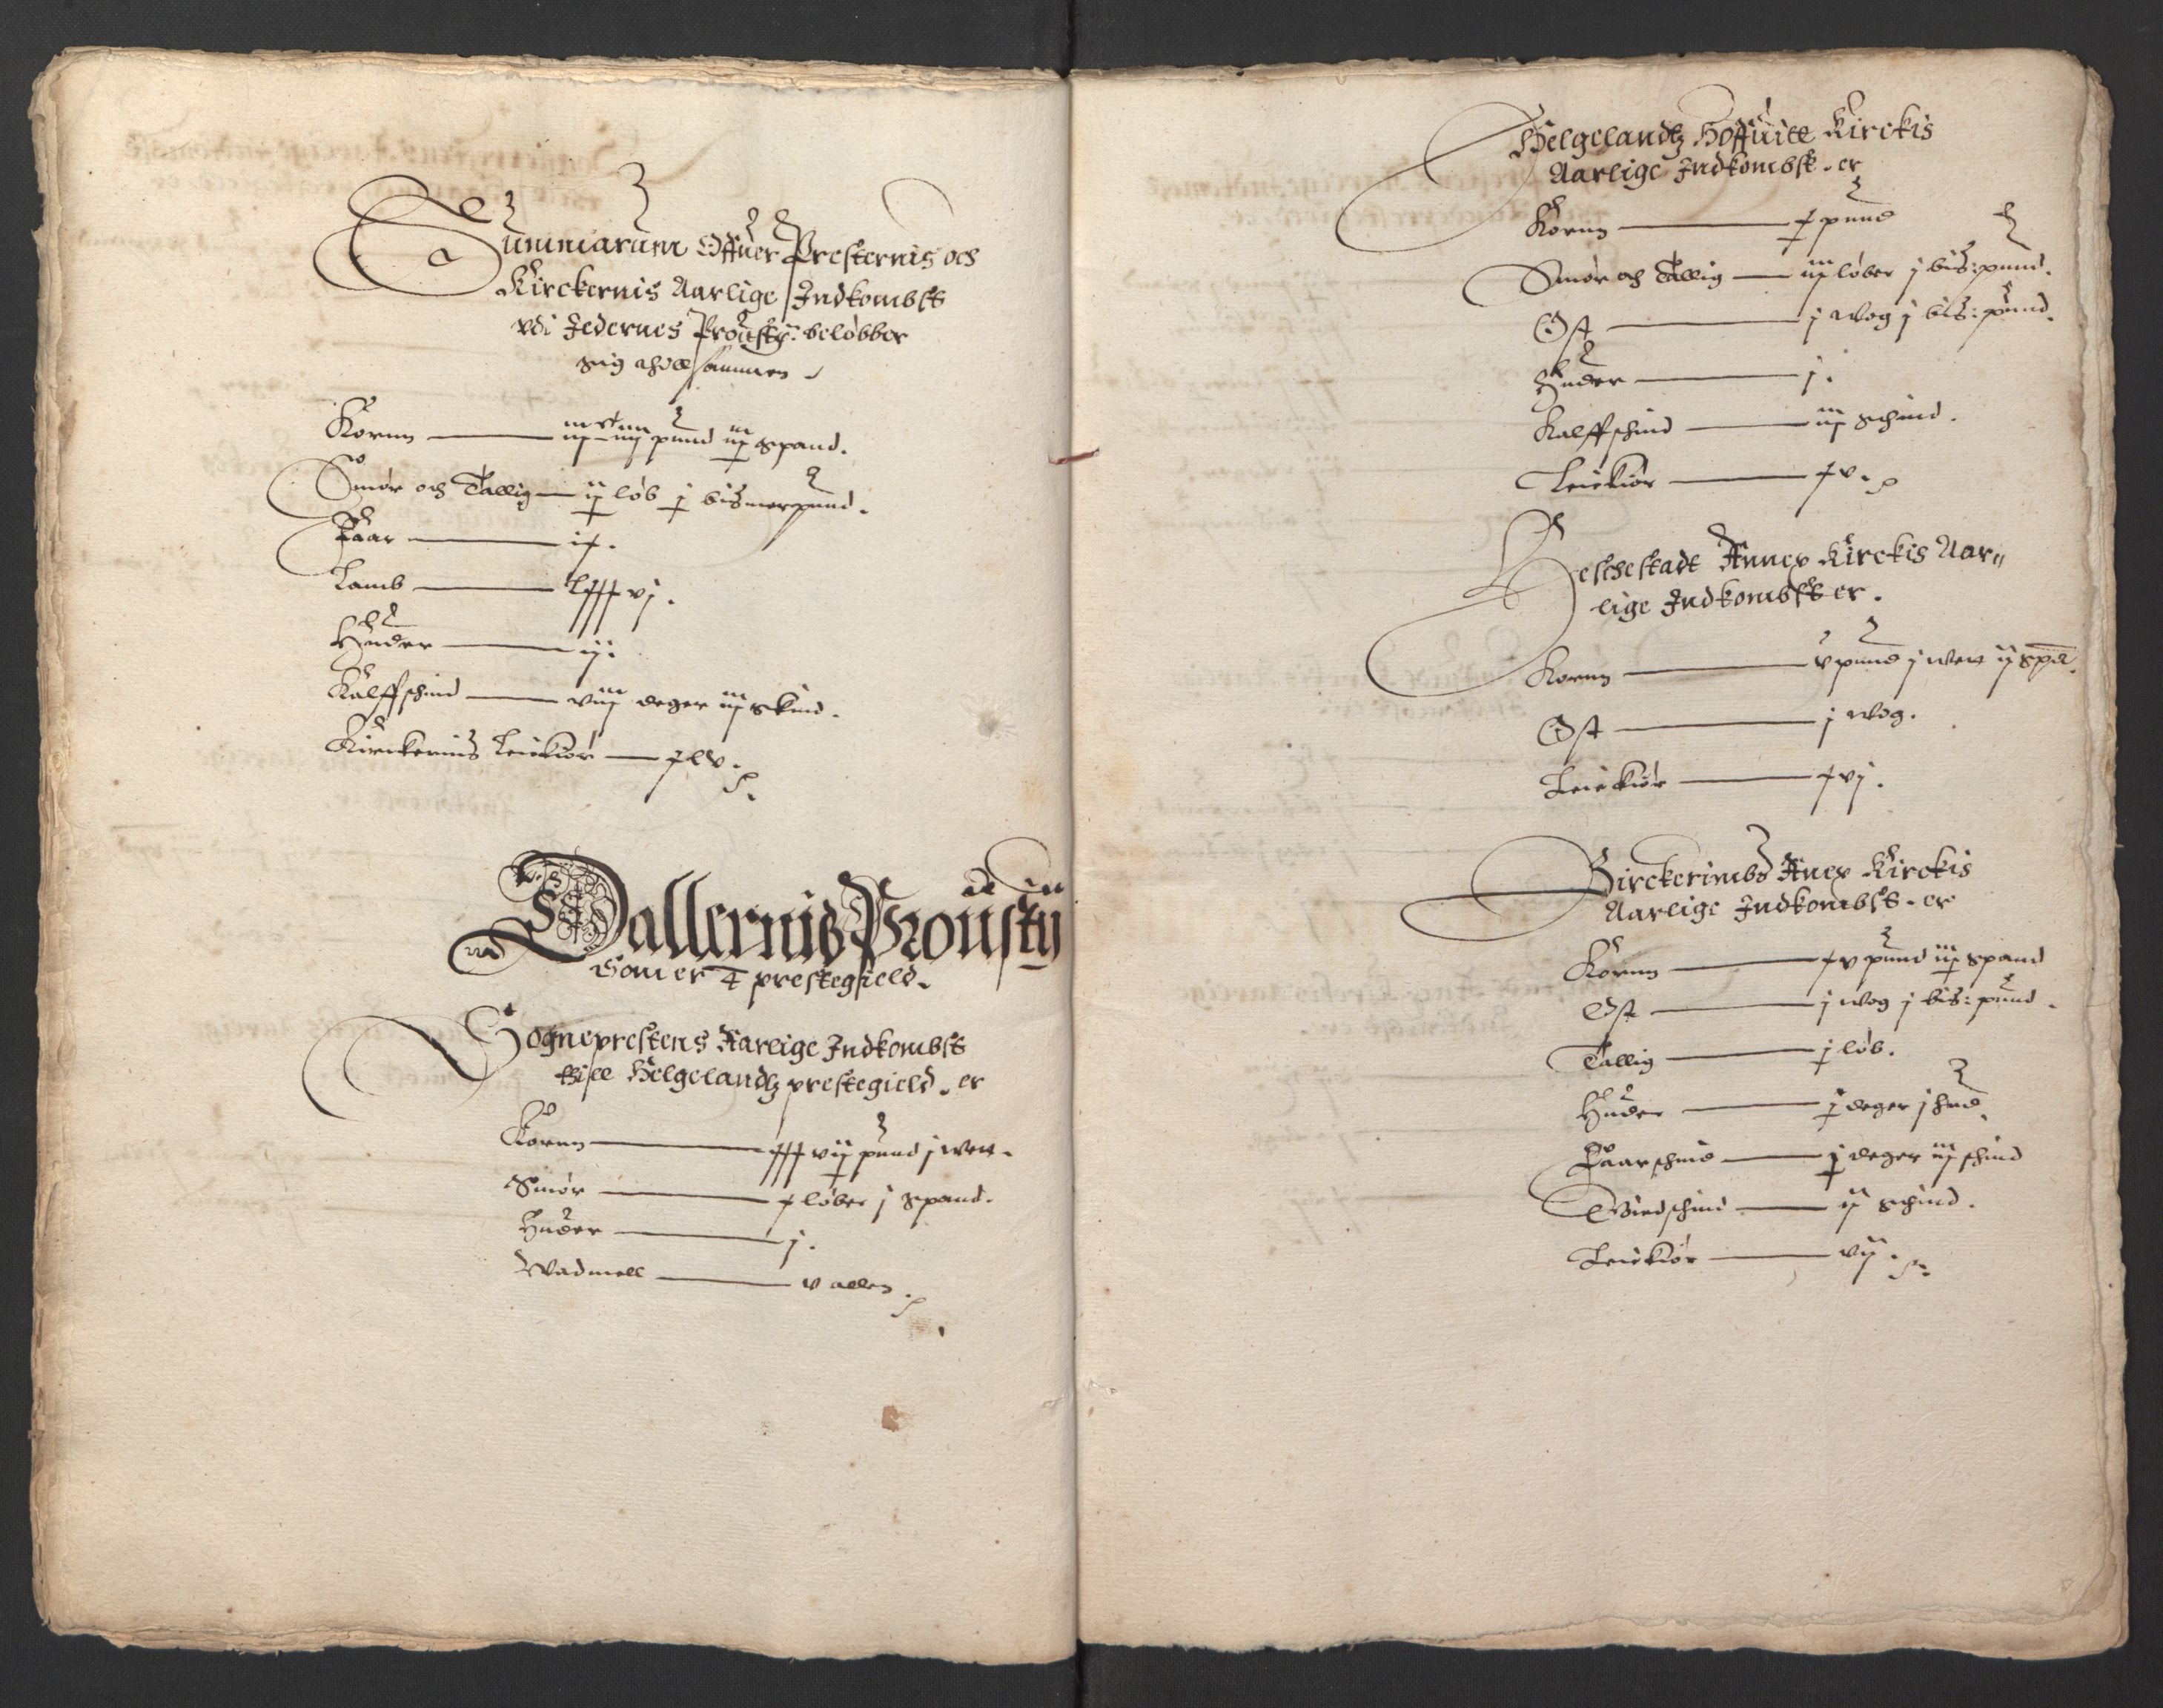 Summarum Offuer Presternis och
Kirckernis Aarlige Indkombst
vdi Jedernes Proustij beløbber
sig
Kornn — pund iiij spand.
Smør och Tallig — ij løb j bismerpund.
Faar — ix.
Lamb — lxxxvj.
Huder — ij.
Kalffschind — viij deger iiij skind.
Kirckernis Leiekiør — xlv.
Dallernis Proustij
Som er 4 prestegield.
Sogneprestens Aarlige Indkombst
till Helgelandtz prestegield. er
Kornn — xxxvij pund j wett.
Smør — x løber j spand.
Huder — j.
Wadmell — v allen.
Helgelandtz Hoffuitt Kirckis
Aarlige Indkombst. er
Kornn — x pund
Smør och Tallig — iij løber j bis: pund.
Ost — j wog j bis: pund.
Huder — j.
Kalffschind — iij schind.
Leiekiør — xv.
Heschestadt Annex Kirckis Aar=
lige Indkombst er.
Kornn — v pund j wett ij spd.
Ost — j wog.
Leiekiør — xvj.
Birckerimbs Anex Kirckis
Aarlige Indkombst. er
Kornn — xv pund iij spand
Ost — j wog j bis: pund.
Tallig — j løb.
Huder — j deger j hud.
Faarschind — j deger iij schind
Giedschind — ij schind.
Leiekiør — vij.